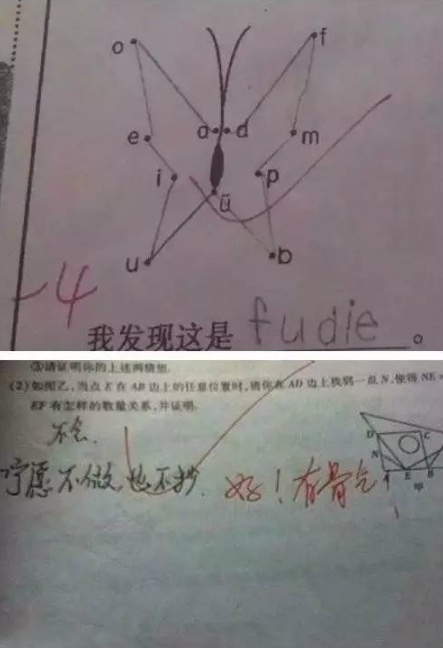 o f
a d
e m
i p
ü
u b
-4
我发现这是 fudie 。
③请证明你的上述两猜想.
(2)如图乙,当点 E 在 AB 边上的任意位置时,请你在 AD 边上找到一点 N,使得 NE
EF 有怎样的数量关系,并证明.
不会.
宁愿不做也不抄. 好!有骨气!
D C
N
A E B
甲